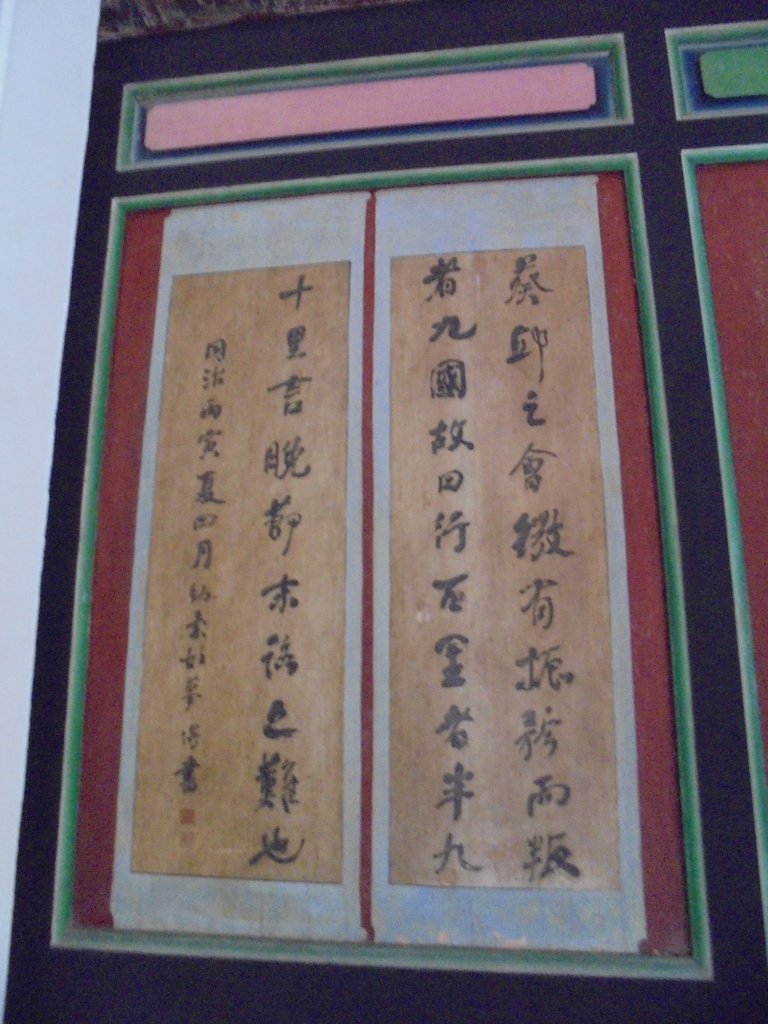 葵邱之會微有振矜而叛
者九國故曰行百里者半九
十里言晚節末路之難也
同治丙寅夏四月
書